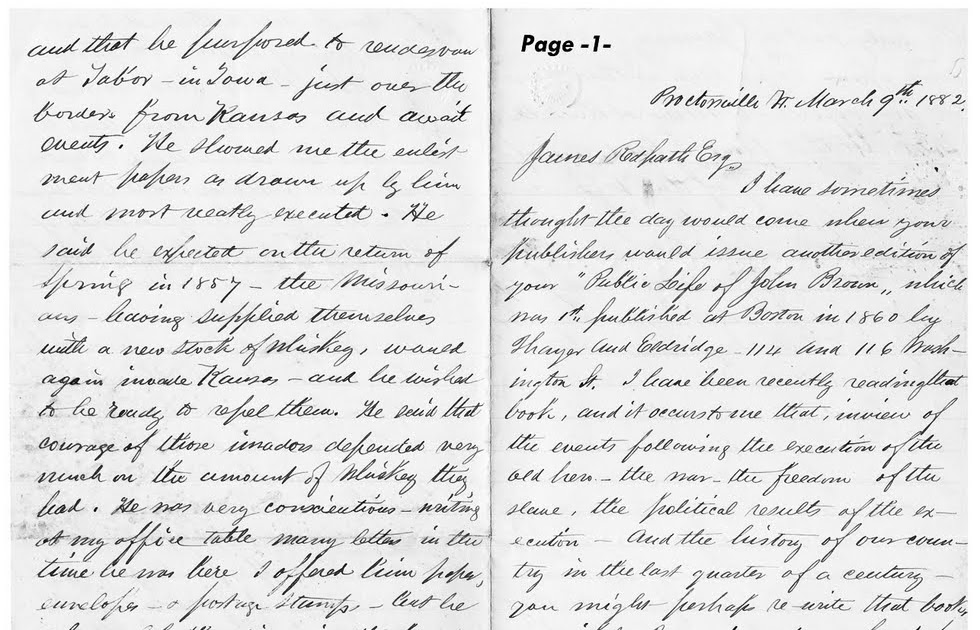 and that he purposed to rendesvou
at Tabor - in Iowa - just over the
borders from Kansas and await
events. He showed me the enlist-
ment papers as drawn up by him
and most neatly executed. He
said he expected on the return of
Spring in 1857 - the Missouri-
ans - having supplied themselves
with a new stock of Whiskey, would
again invade Kansas - and he wished
to be ready to repel them. He said that
courage of those invadors depended very
much on the amount of Whiskey they
had. He was very conscientious - writing
at my office table many letters in the
time he was here I offered him paper,
envelopes - & postage stamps - but he
Page -1-
Proctorsville Vt. March 9th. 1882.
James Redpath Esq
I have sometimes
thought the day would come when your
publishers would issue another edition of
your "Public Life of John Brown" which
was 1st published at Boston in 1860 by
Thayer and Eldridge - 114 and 116 Wash-
ington St. I have been recently reading that
book, and it occurs to me that, in view of
the events following the execution of the
old hero - the war - the freedom of the
slave, the political results of the ex-
ecution - And the history of our coun-
try in the last quarter of a century -
you might perhaps re-write that book,